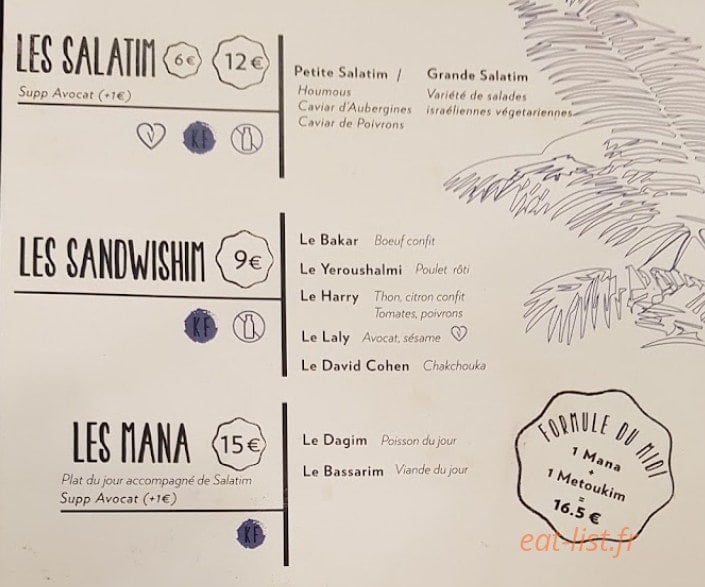 LES SALATIM 6€ 12€
Supp Avocat (+1€)
KF
Petite Salatim /
Houmous
Caviar d'Aubergines
Caviar de Poivrons
Grande Salatim
Variété de salades
israéliennes végetariennes
LES SANDWISHIM 9€
KF
Le Bakar Boeuf confit
Le Yeroushalmi Poulet rôti
Le Harry Thon, citron confit
Tomates, poivrons
Le Laly Avocat, sésame
Le David Cohen Chakchouka
LES MANA 15€
Plat du jour accompagné de Salatim
Supp Avocat (+1€)
KF
Le Dagim Poisson du jour
Le Bassarim Viande du jour
FORMULE DU MIDI
1 Mana
+
1 Metoukim
=
16.5 €
eat-list.fr